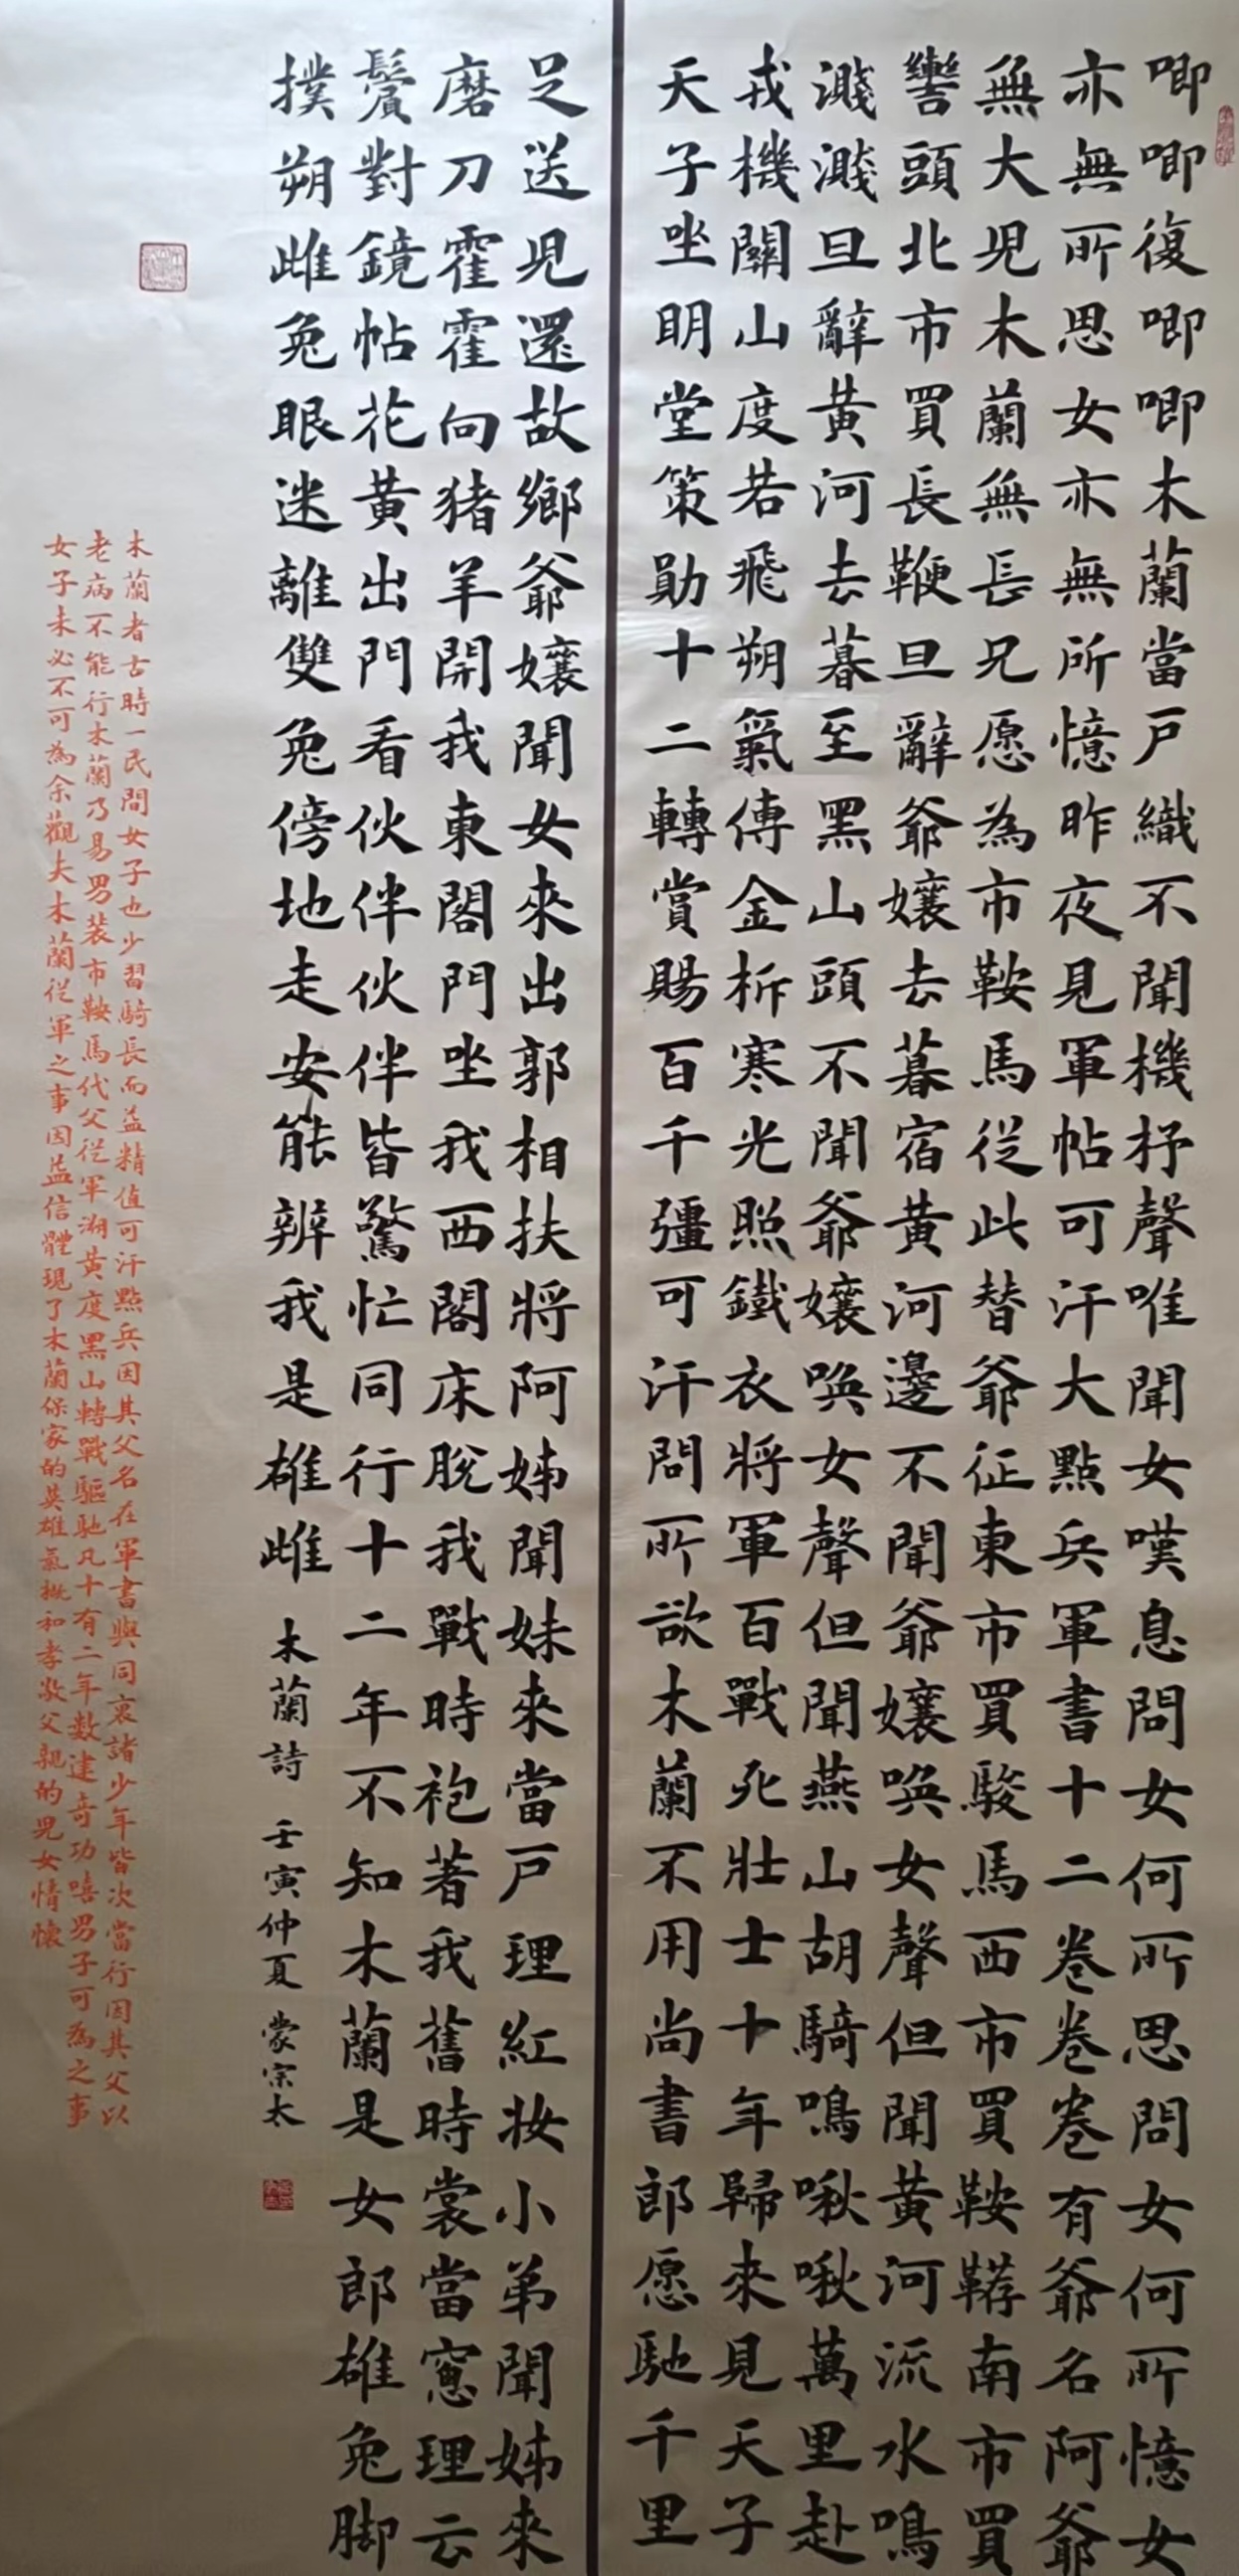 唧唧復唧唧木蘭當戶織不聞機杼聲唯聞女嘆息問女何所思問女何所憶女
亦無所思女亦無所憶昨夜見軍帖可汗大點兵軍書十二卷卷卷有爺名阿爺
無大兒木蘭無長兄愿為市鞍馬從此替爺征東市買駿馬西市買鞍鞯南市買
轡頭北市買長鞭旦辭爺孃去暮宿黃河邊不聞爺孃喚女聲但聞黃河流水鳴
濺濺旦辭黃河去暮至黑山頭不聞爺孃喚女聲但聞燕山胡騎鳴啾啾萬里赴
戎機關山度若飛朔氣傳金柝寒光照鐵衣將軍百戰死壯士十年歸來見天子
天子坐明堂策勛十二轉賞賜百千彊可汗問所欲木蘭不用尚書郎愿馳千里
足送兒還故鄉爺孃聞女來出郭相扶將阿姊聞妹來當戶理紅妝小弟聞姊來
磨刀霍霍向猪羊開我東閣門坐我西閣床脫我戰時袍著我舊時裳當窓理云
鬢對鏡帖花黃出門看伙伴伙伴皆驚忙同行十二年不知木蘭是女郎雄兔脚
撲朔雌兔眼迷離雙兔傍地走安能辨我是雄雌 木蘭詩 壬寅仲夏 蒙宗太
木蘭者古時一民間女子也少習騎長而益精值可汗點兵因其父名在軍書與同裏諸少年皆次當行因其父以
老病不能行木蘭乃易男裝市鞍馬代父從軍溯黃度黑山轉戰驅馳凡十有二年数建奇功嘻男子可為之事
女子未必不可為余觀夫木蘭從軍之事因益信體現了木蘭保家的英雄氣概和孝敬父親的兒女情懷